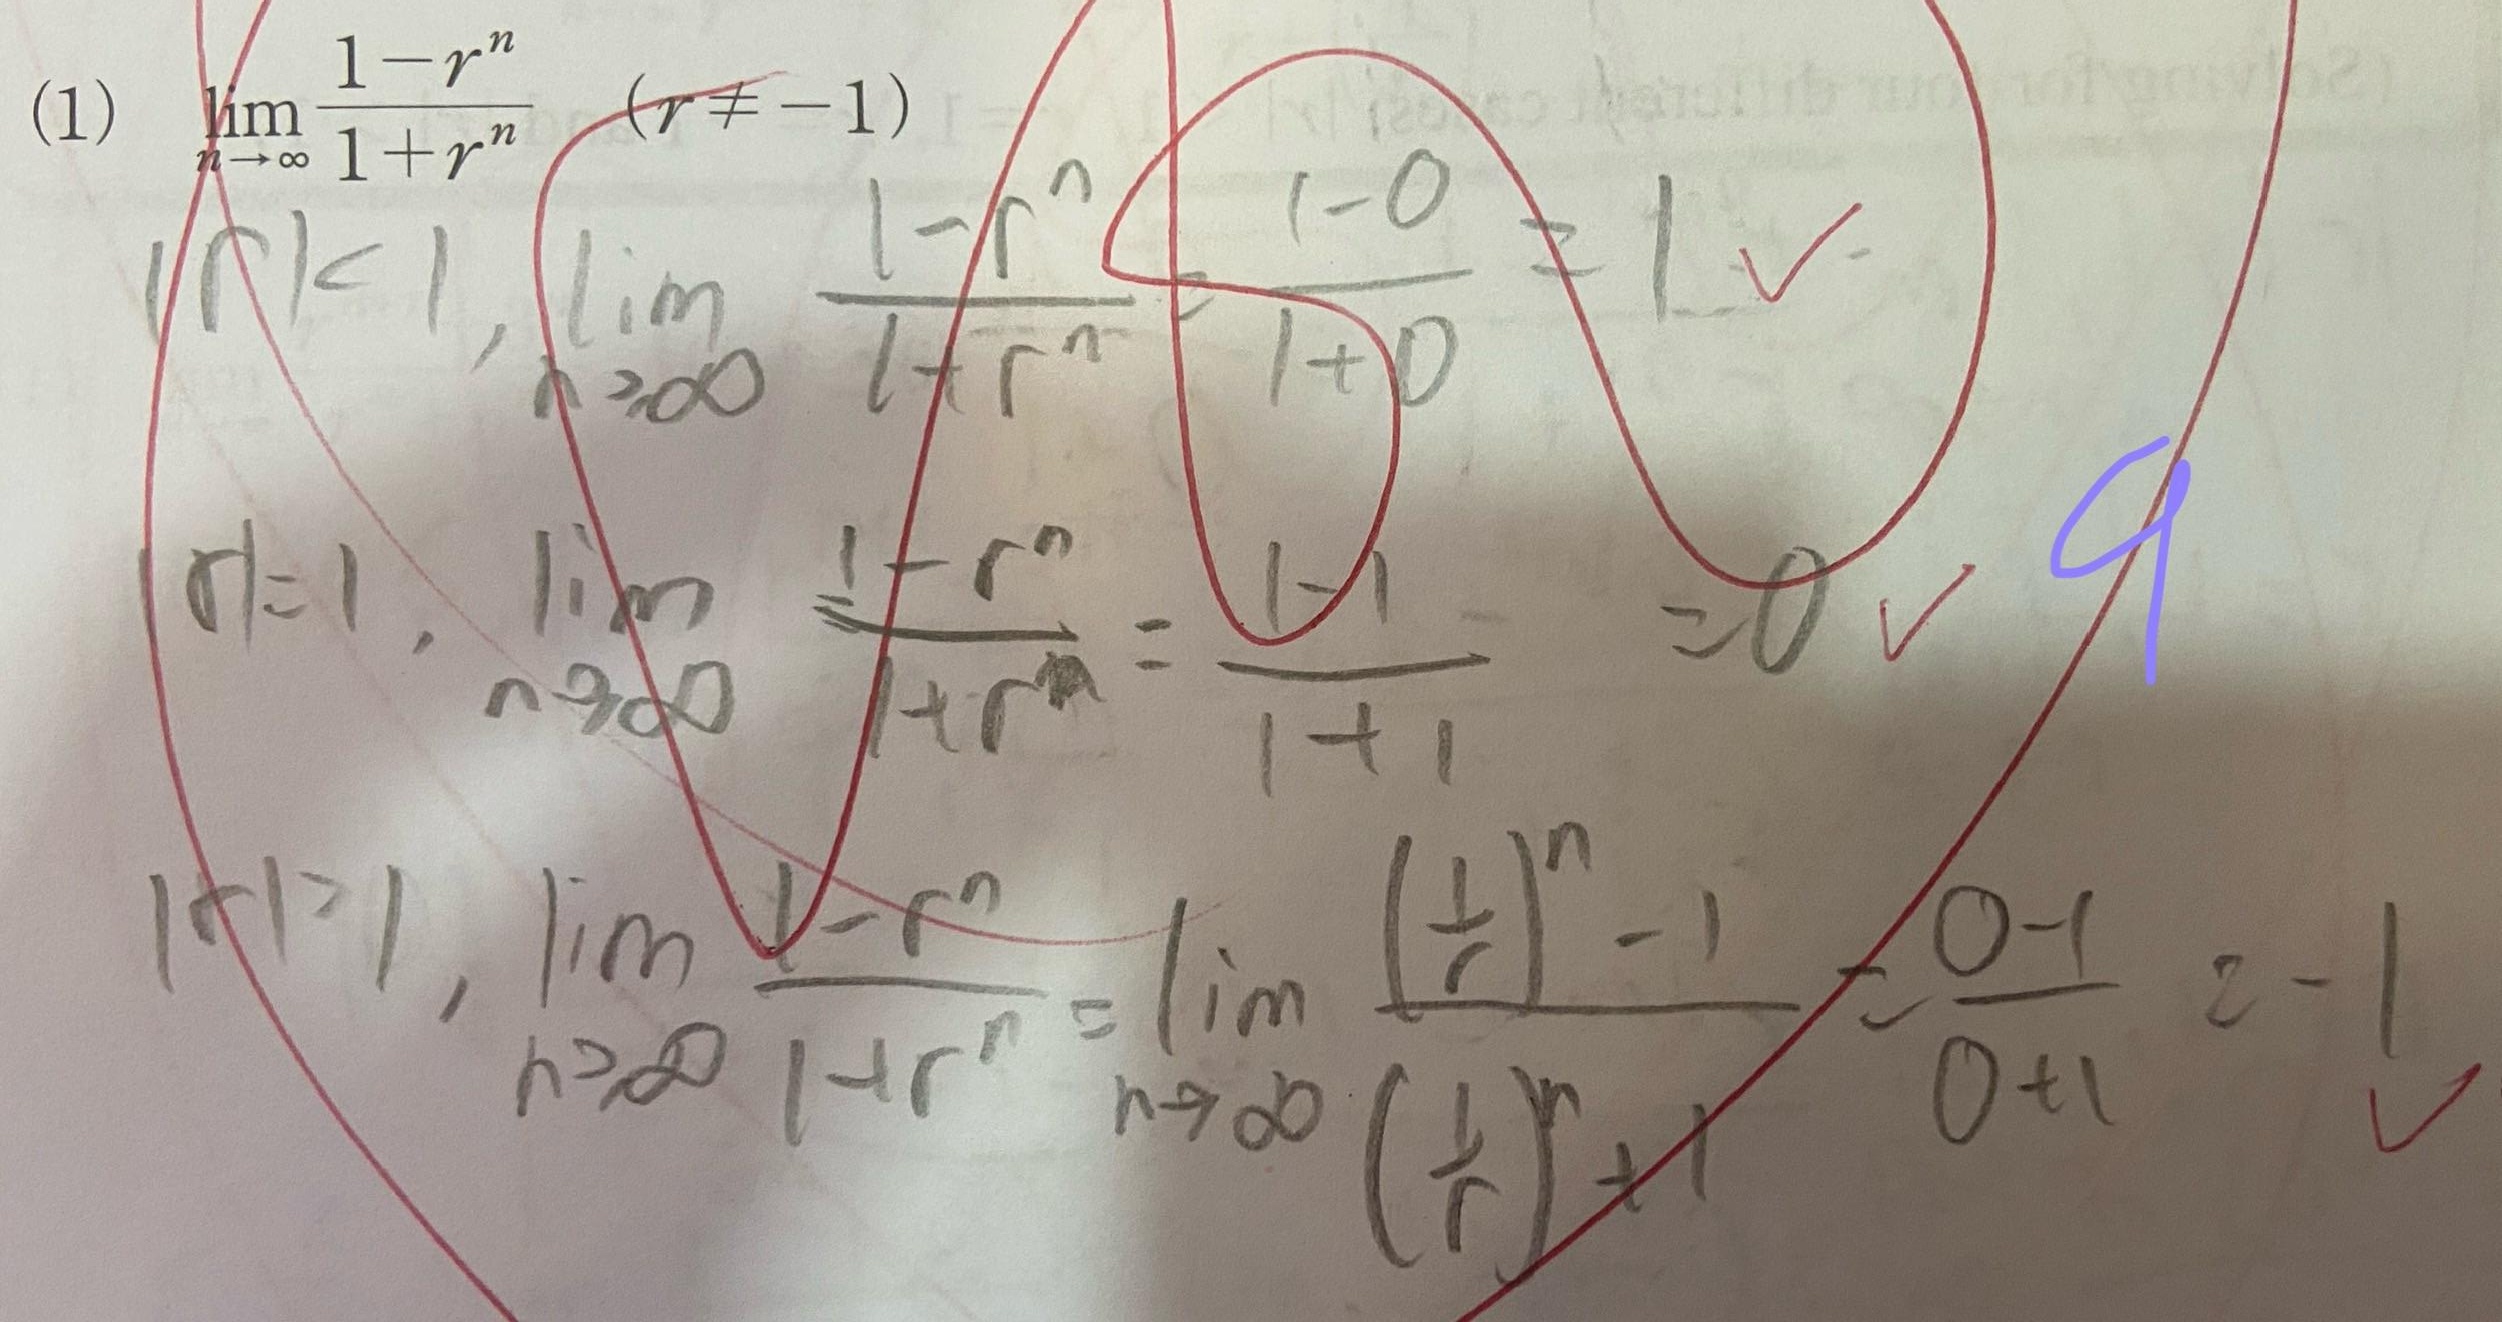 (1) lim n→∞ (1−rⁿ)/(1+rⁿ) (r≠−1)
|r|<1, lim n→∞ (1−rⁿ)/(1+rⁿ) = (1−0)/(1+0) = 1 ✓
|r|=1, lim n→∞ (1−rⁿ)/(1+rⁿ) = (1−1)/(1+1) = 0 ✓
9
|r|>1, lim n→∞ (1−rⁿ)/(1+rⁿ) = lim n→∞ ((1/r)ⁿ−1)/((1/r)ⁿ+1) = (0−1)/(0+1) = −1 ✓